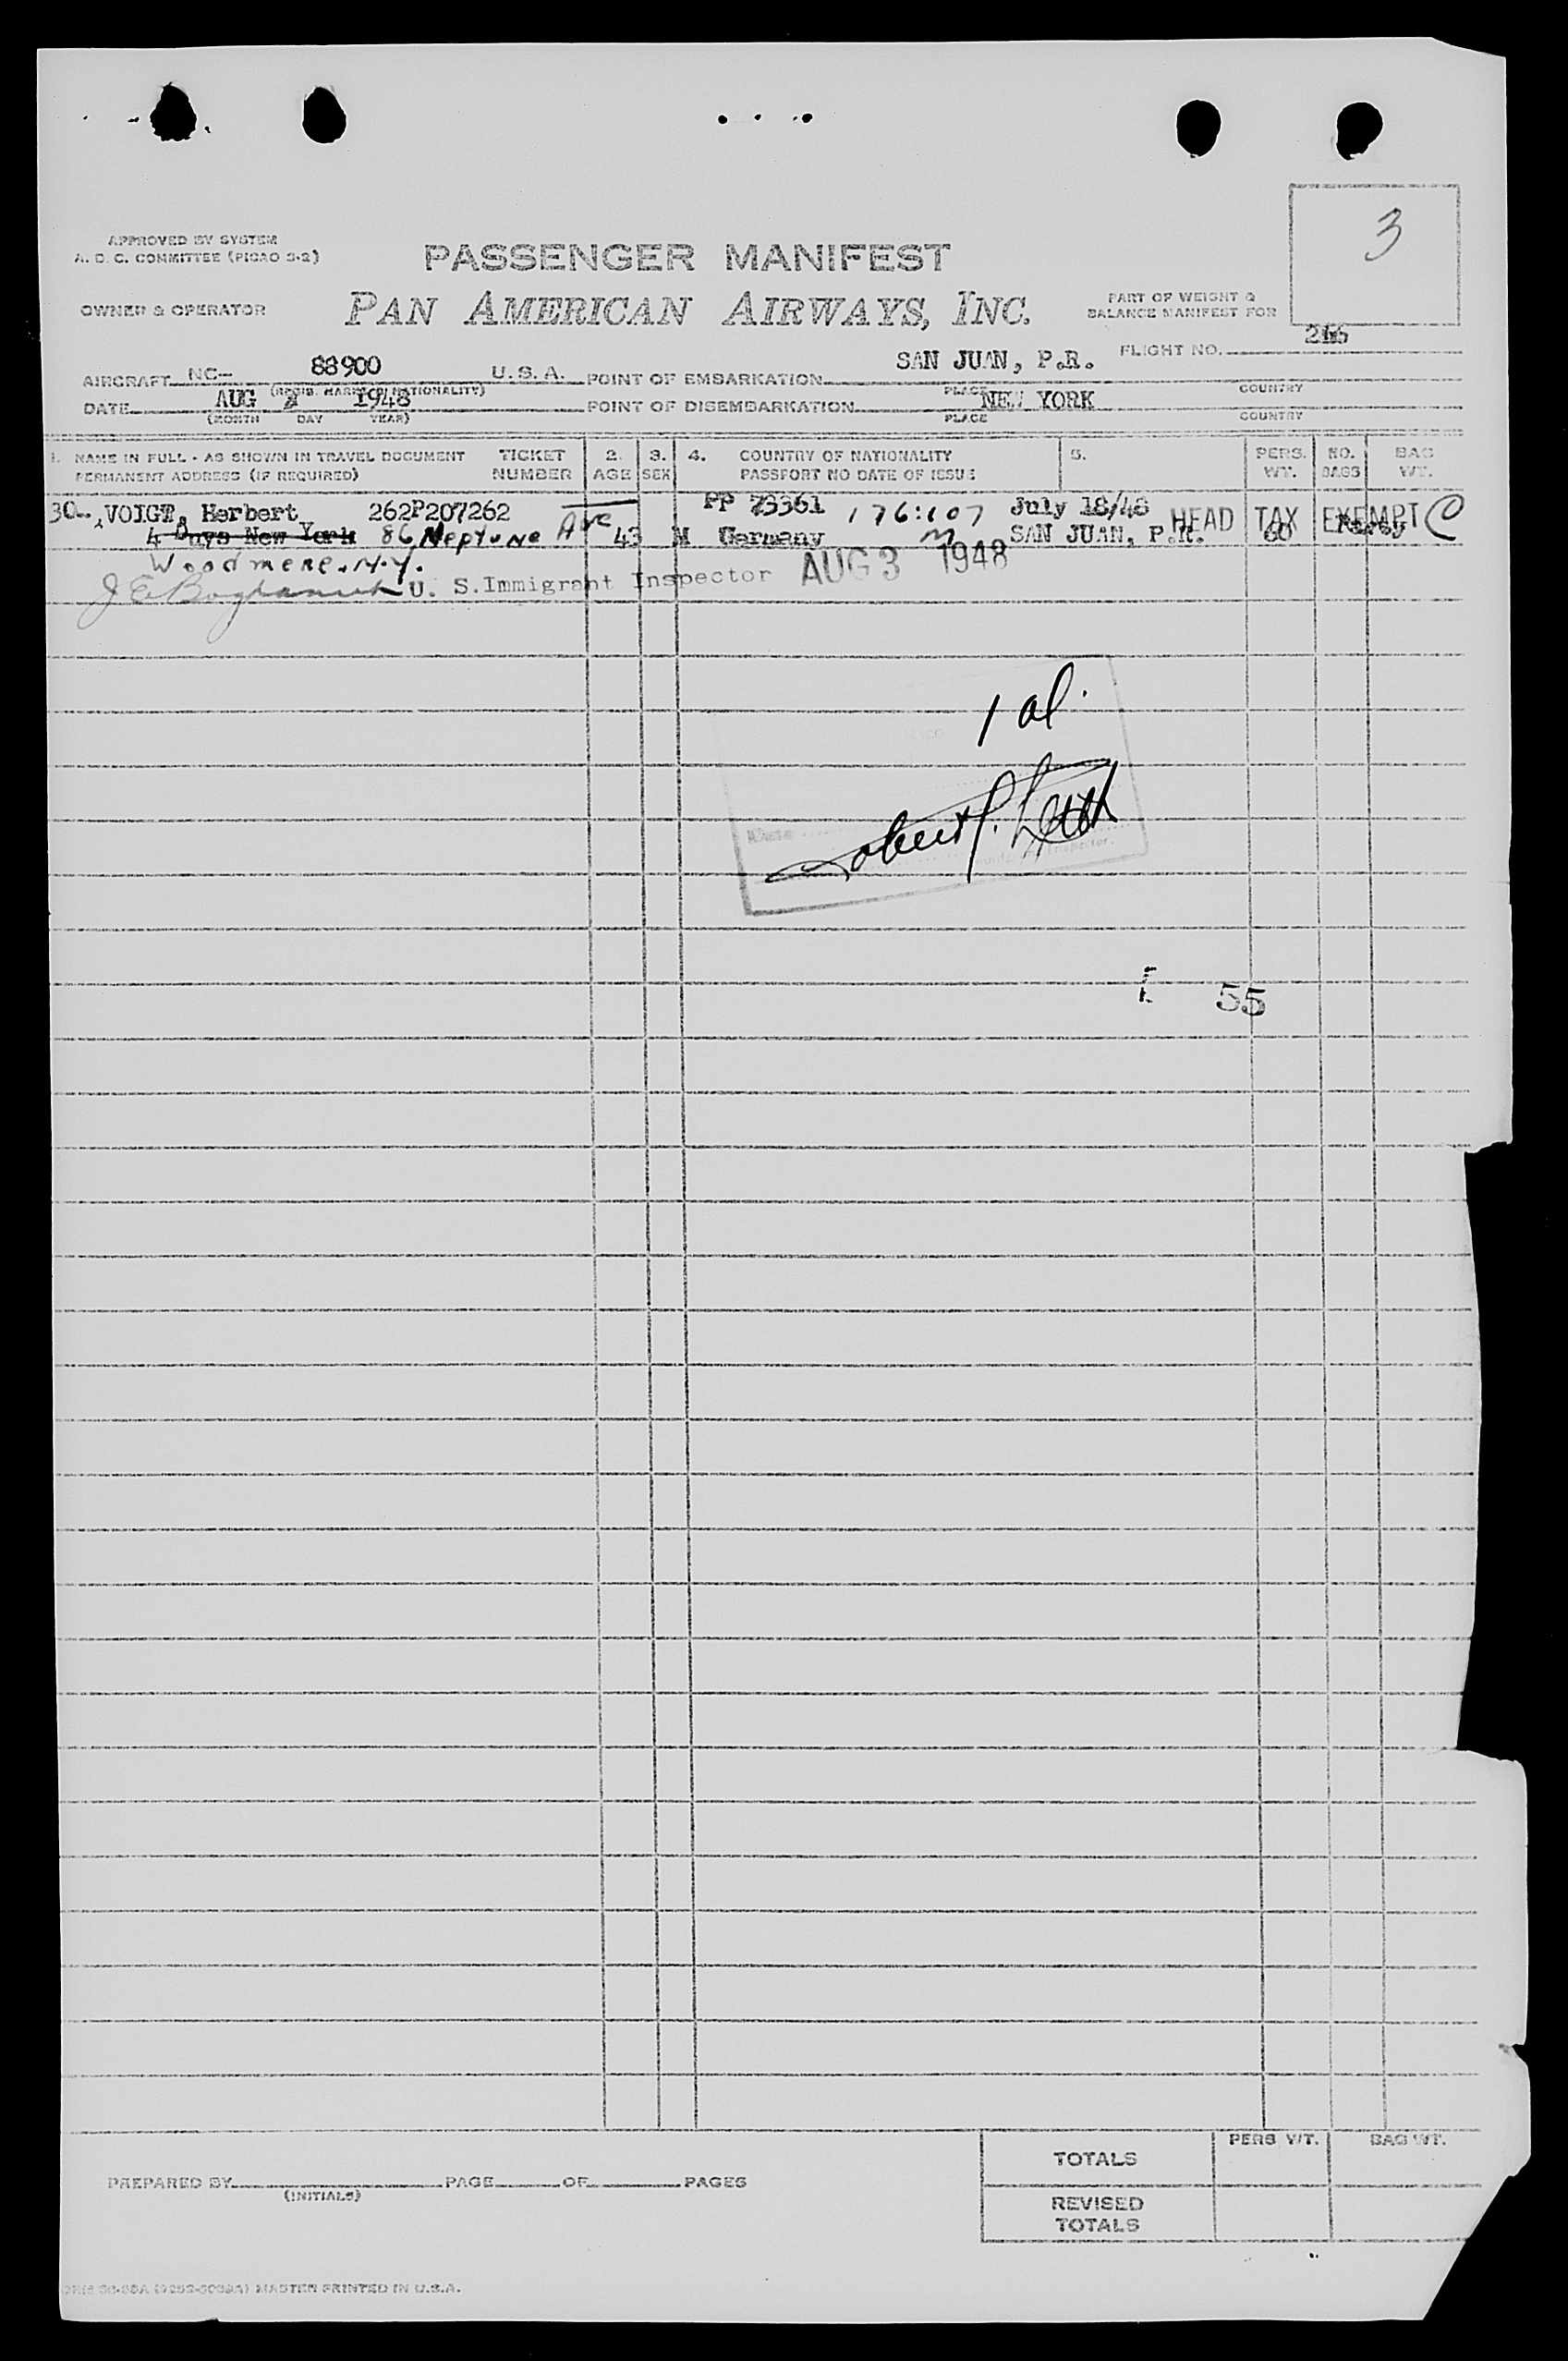 3
APPROVED BY SYSTEM
A. O. C. COMMITTEE (PICAO 3-2)
PASSENGER MANIFEST
OWNER & OPERATOR
PAN AMERICAN AIRWAYS, INC.
PART OF WEIGHT &
BALANCE MANIFEST FOR
AIRCRAFT NC- 88900 U.S.A. POINT OF EMBARKATION SAN JUAN, P.R. FLIGHT NO.
(REGIS. MARK OR NATIONALITY) PLACE COUNTRY
DATE AUG 1948 POINT OF DISEMBARKATION NEW YORK
(MONTH DAY YEAR) PLACE COUNTRY
1. NAME IN FULL - AS SHOWN IN TRAVEL DOCUMENT TICKET 2. 3. 4. COUNTRY OF NATIONALITY 5. PERS. NO. BAG
PERMANENT ADDRESS (IF REQUIRED) NUMBER AGE SEX PASSPORT NO DATE OF ISSUE WT. BAGS WT.
30 VOIGT, Herbert 262P207262 PP 73361 176:107 July 18/48 HEAD TAX EXEMPT C
4 Days New York 86 Neptune Ave 43 M Germany SAN JUAN, P.R. 60
Woodmere. N.Y.
U. S. Immigrant Inspector AUG 3 1948
1 al.
55
TOTALS PERS WT. BAG WT.
PREPARED BY PAGE OF PAGES
(INITIALS)
REVISED
TOTALS
MASTER PRINTED IN U.S.A.